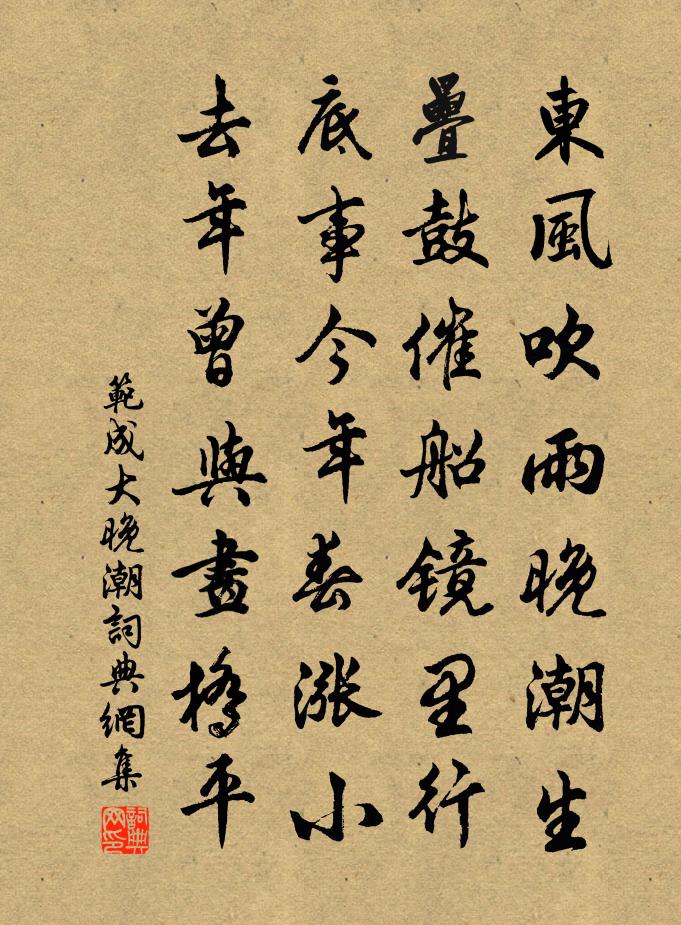 東風吹雨晚潮生
疊鼓催船镜里行
底事今年春涨小
去年曾與畫橋平
範成大晚潮詞典網集
詞典网印